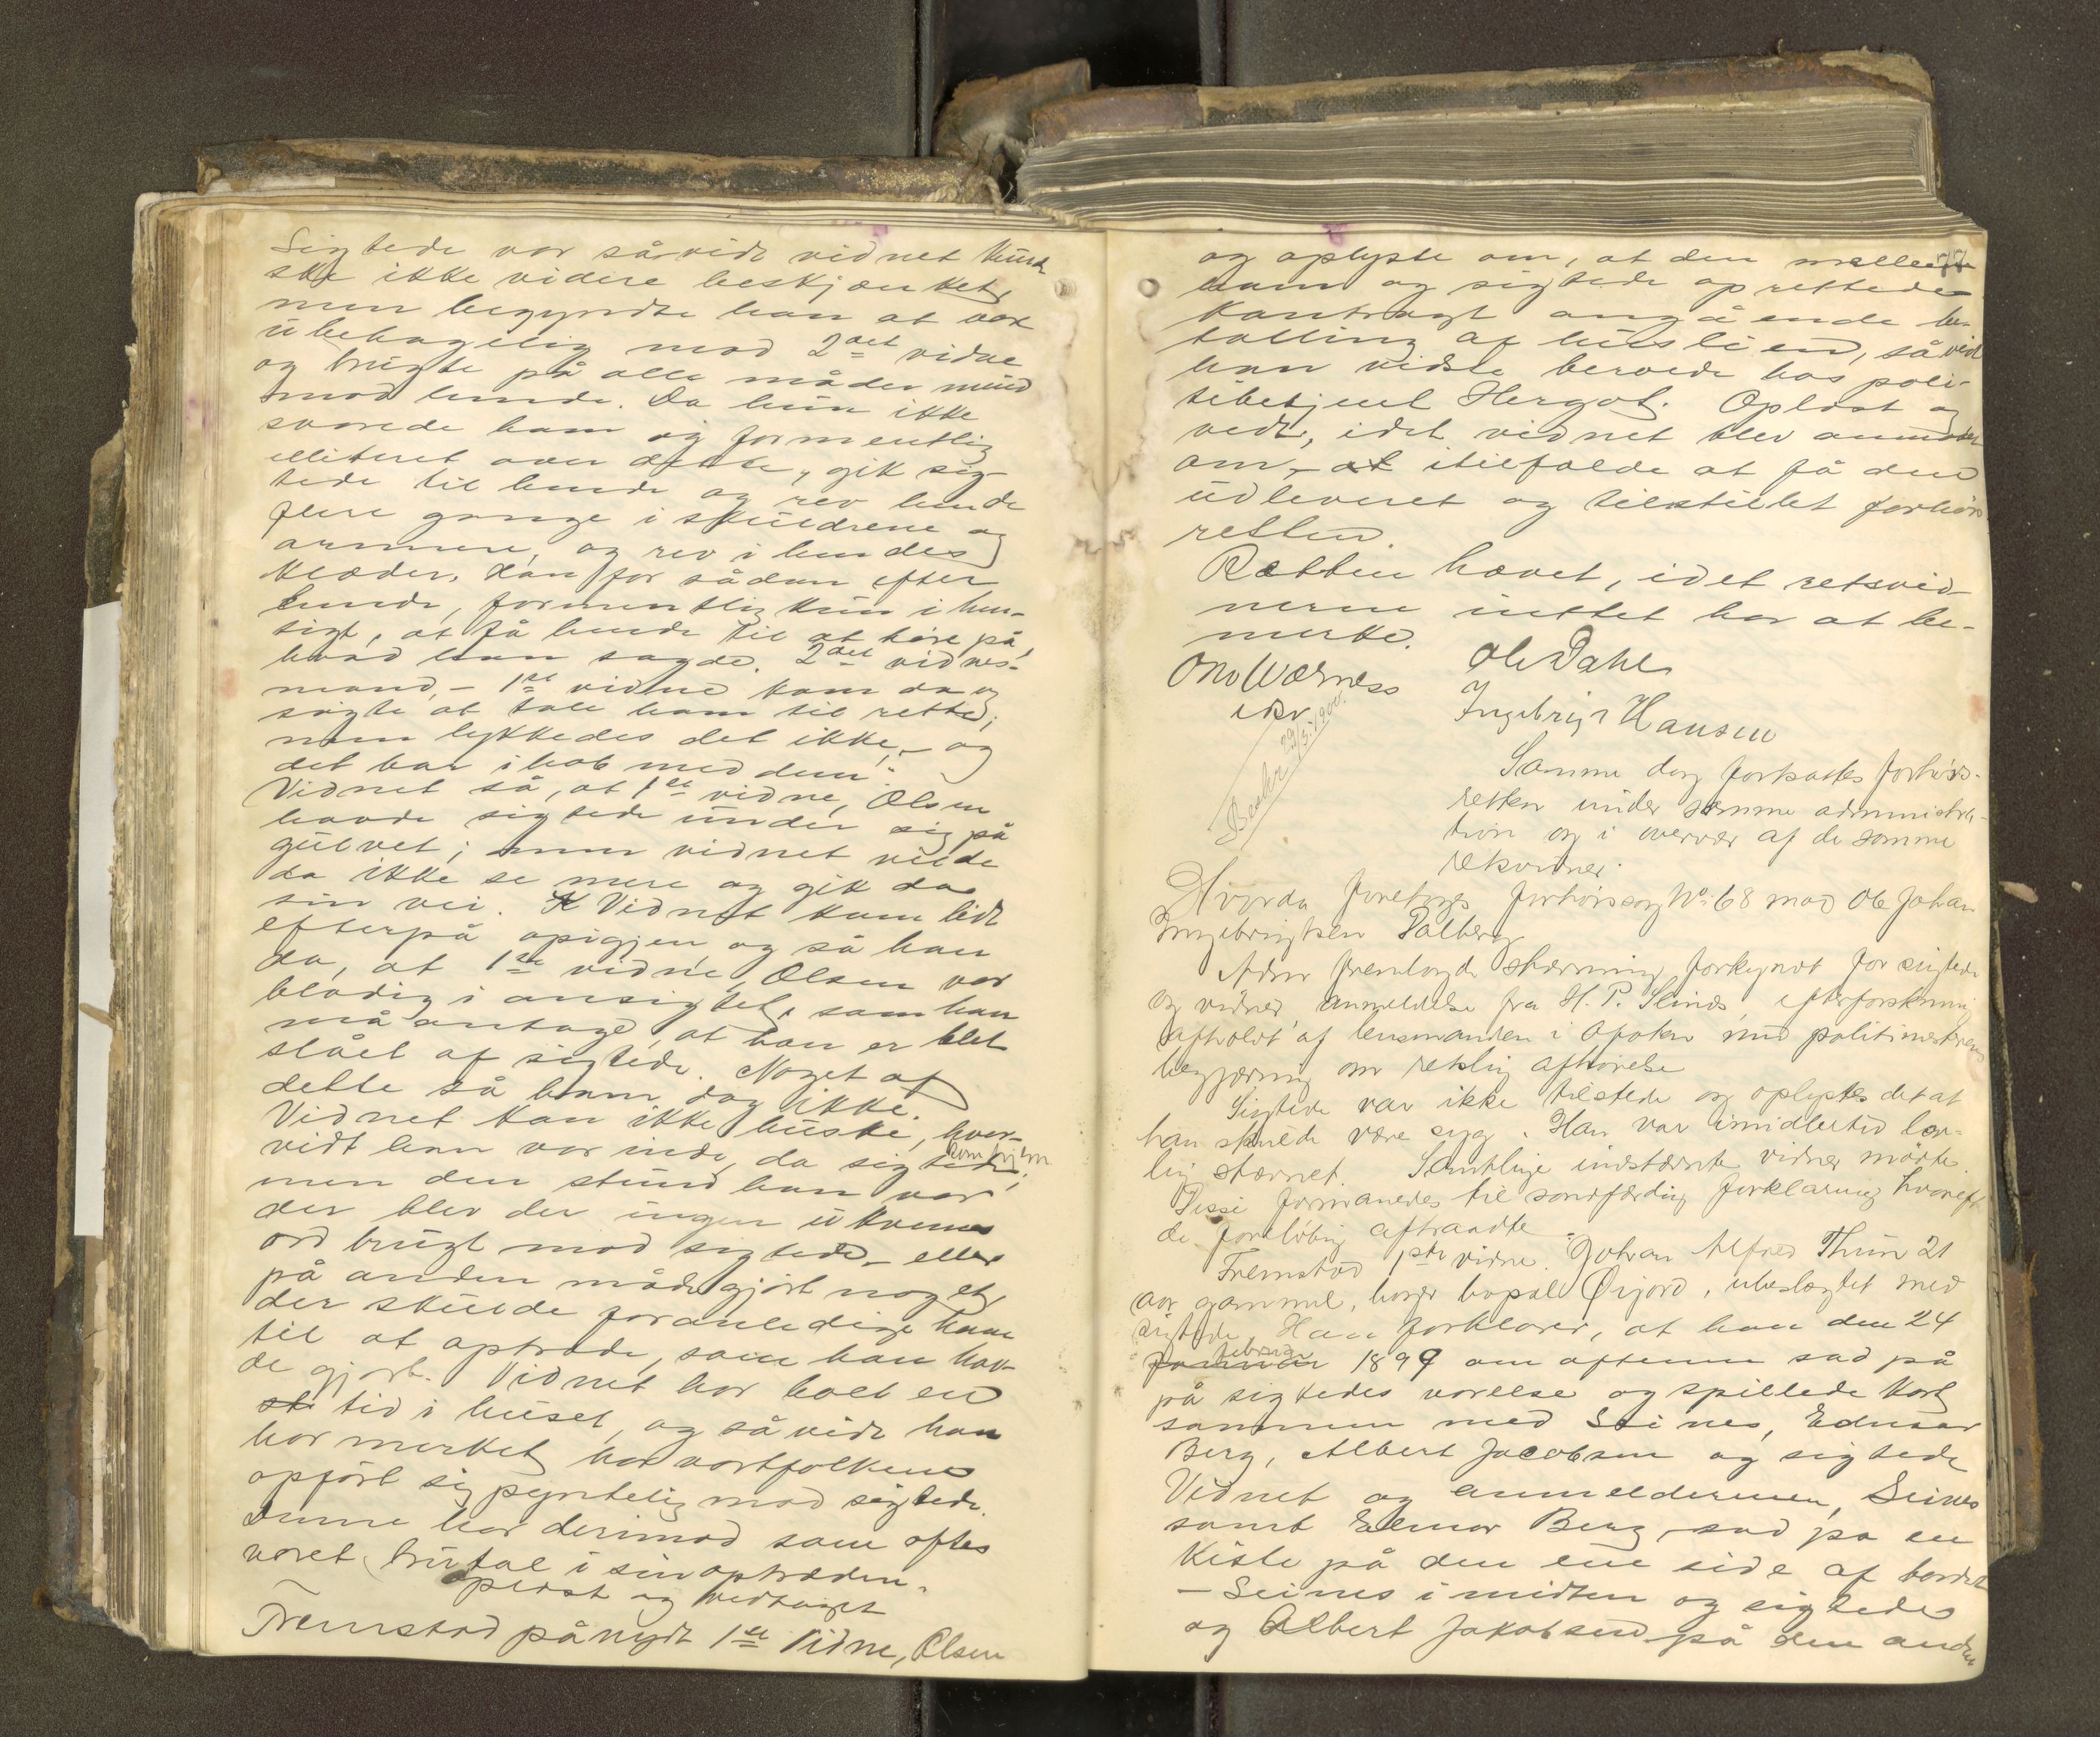 Sigtede var såvidt vidnet kunde
ske ikke videre beskjænket,
men begyndte han at være
ubehagelig mod 2det vidne
og brugte på alle måder mund
mod hende. Da hun ikke
svarede ham og formentlig
over dette, gik sig-
tede til hende og rev hende
flere gange i skuldrene og
armene, og rev i hendes
klæder. Han for sådan efter
hende, formentlig kun i hen-
sigt, at få hende til at høre på,
hvad han sagde. 2det vidnes
mand, – 1ste vidne kom da og
søgte at tale ham til rette;
men lykkedes det ikke, – og
det bar ihob med dem.
Vidnet så, at 1ste vidne, Olsen
havde sigtede under sig på
gulvet; men vidnet vilde
da ikke se mere og gik da
sin vei. Vidnet kom lidt
efterpå opigjen og så han
da, at 1ste vidne, Olsen var
blodig i ansigtet, som han
må antage, at han er blet
slået af sigtede. Noget af
dette så han dog ikke.
Vidnet kan ikke huske, hvor-
vidt han var inde, da sigtede kom hjem,
men den stund han var
der blev der ingen ukvems
ord brugt mod sigtede – eller
på anden måde gjort noget,
der skulde foranledige ham
til at optræde, som han hav-
de gjort. Vidnet har boet en
tid i huset, og såvidt han
har merket har vertfolkene
opført sig pyntelig mod sigtede.
Denne har derimod som oftes
været brutal i sin optræden.
Oplæst og vedtaget
Fremstod pånydt 1ste Vidne, Olsen
77
og oplyste om, at den mellem
ham og sigtede oprettede
kontragt angående be-
talling af huslien, såvidt
han vidste beroede hos poli-
tibetjent Hergot. Oplæst og
vedt., idet vidnet blev anmodet
om, at itilfælde at få den
udleveret og tilstillet forhørs
retten.
Retten hævet, idet retsvid-
nerne inttet har at be-
merke.
Ole Dahl
Ingebrigt Hansen
29/5 1900.
Samme dag fortsattes forhørs-
retten under samme administra-
tion og i overvær af de samme
retsvidner.
Hvorda foretoges forhørssag No. 68 mod Ole Johan
Ingebrigtsen Valberg
Adm fremlagde stævning forkyndt for sigtede
og vidner, anmeldelse fra H. P. Seines, efterforskning
aftholdt af lensmanden i med politimesterens
begjæring om retslig afhørelse
Sigtede var ikke tilstede og oplystes det at
han skulde være syg. Han var imidlertid lov-
lig stævnet. Samtlige indstævnte vidner mødte.
Disse formanedes til sandfærdig forklaring hvoreft
de foreløbig aftraadte.
Fremstod 1ste vidne Johan Alfred Thun 21
aar gammel, bopæl Øijord, ubeslægtet med
sigtede. Han forklarer, at han den 24
februar 1899 om aftenen sad på
på sigtedes værelse og spillede kort
sammen med Seines, Edmar
Berg, Albert Jacobsen og sigtede
Vidnet og anmelderen, Seines
samt Edmar Berg sad på en
kiste på den ene side af bordet
– Seines i midten og sigtede
og Albert Jakobsen på den anden